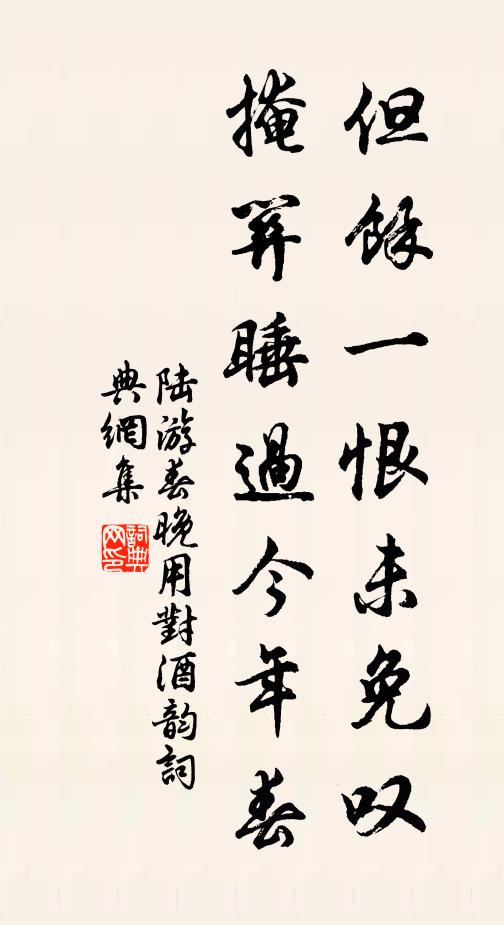 但餘一恨未免叹
掩关睡過今年春
陆游春晚用對酒韵詞
典網集
詞典
网印